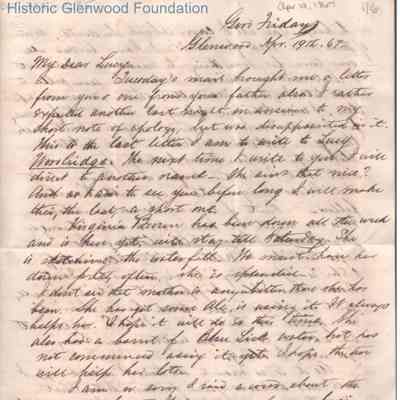 Historic Glenwood Foundation
Apr 19, 1867
Good Friday
Glenwood Apr. 19th 67.
My Dear Lucy
Tuesday's mail brought me a letter
from you & one from your father also. I rather
expected another last night, in answer to my
short note of apology, but was disappointed in it.
This is the last letter I am to write to Lucy
Wooldridge. The next time I write to you I will
direct to another name. Ain't that nice?
And as I have to see you before long I will make
this, the last, a short one.
Virginia Brown has been down all the week
and is here yet, will stay till Saturday. She
is sketching the waterfall. We must have her
down pretty often, she is splendid.
I don't see that mother is any better than she has
been. She has got some Ale, is using it. It always
helps her. I hope it will do so this time. She
also had a barrel of Blue Lick water, but has
not commenced using it yet. I hope the two
will help her both.
I am so sorry I said a word about the